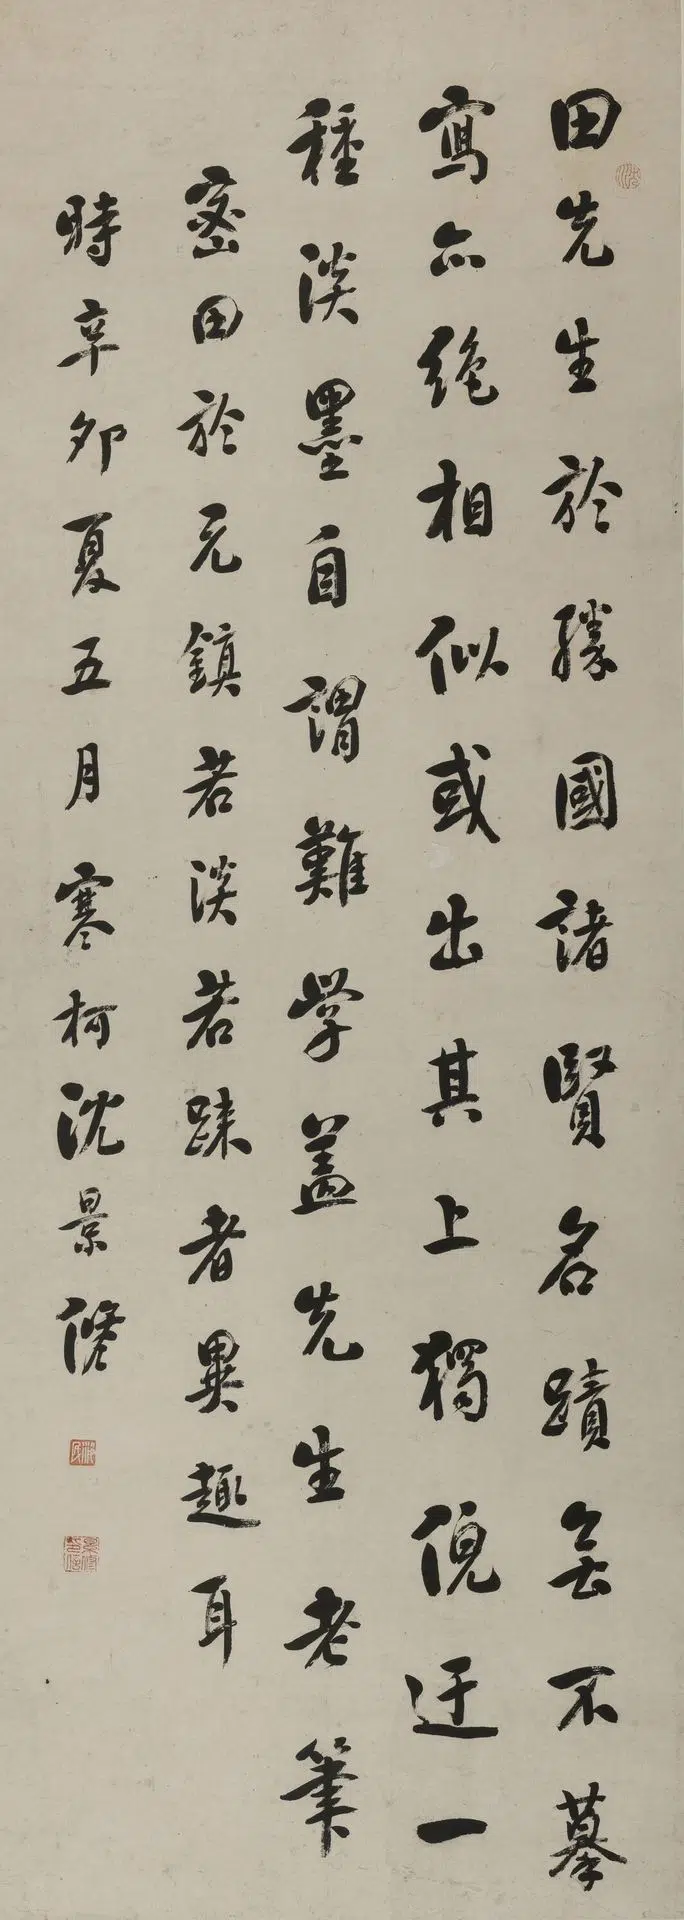 田先生於勝國諸賢名蹟無不摹
寫亦絕相似或出其上獨倪迂一
種淡墨自謂難學蓋先生老筆
密田於元鎮若淡若疎者異趣耳
時辛卯夏五月寒柯沈景修